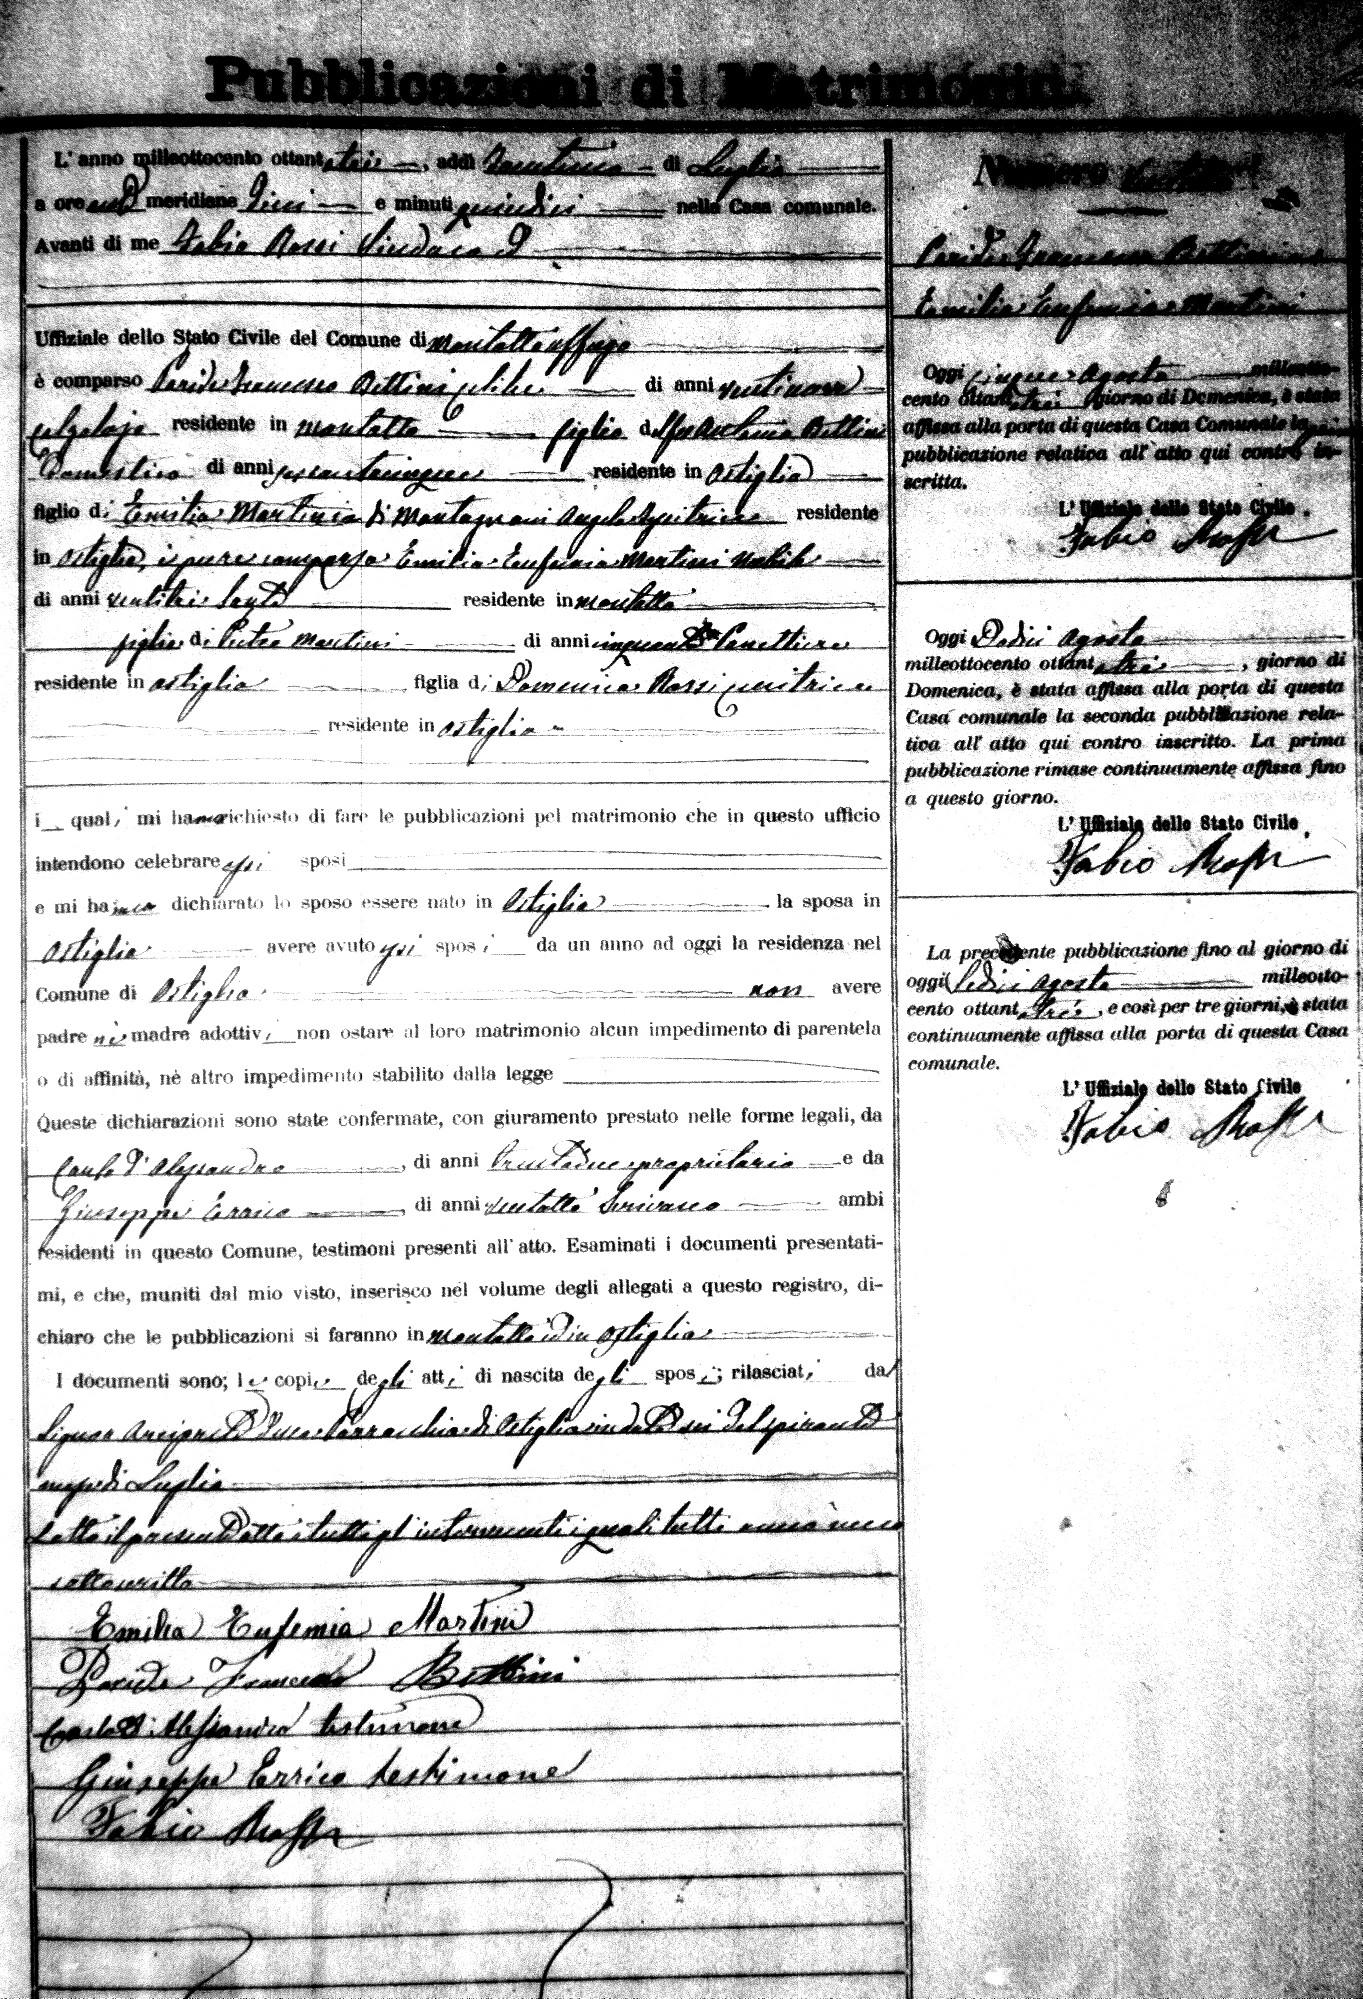 Pubblicazioni di Matrimonio.
L'anno milleottocento ottantatrè, addì trentuno di Luglio
a ore ant meridiane dieci e minuti quindici nella Casa comunale.
Avanti di me Fabio Rossi Sindaco
Uffiziale dello Stato Civile del Comune di Montalto Uffugo
è comparso Paride Francesco Bettini celibe di anni ventinove
calzolajo residente in Montalto figlio di Antonio Bettini
Domestico di anni sessantacinque residente in Ostiglia
figlio di Emilia Martinia di Montagnani Angelo residente
in Ostiglia, è pure comparsa Emilia Eufemia Martini nubile
di anni ventitrè Sarta residente in Montalto
figlia di Pietro Martini di anni cinquanta Panettiere
residente in Ostiglia figlia di Domenica Rossi cucitrice
residente in Ostiglia
i quali mi hanno richiesto di fare le pubblicazioni pel matrimonio che in questo ufficio
intendono celebrare essi sposi
e mi hanno dichiarato lo sposo essere nato in Ostiglia la sposa in
Ostiglia avere avuto essi sposi da un anno ad oggi la residenza nel
Comune di Ostiglia non avere
padre nè madre adottivi non ostare al loro matrimonio alcun impedimento di parentela
o di affinità, nè altro impedimento stabilito dalla legge
Queste dichiarazioni sono state confermate, con giuramento prestato nelle forme legali, da
Carlo D'Alessandro, di anni trentadue proprietario e da
Giuseppe Errico, di anni ventotto Scrivano ambi
residenti in questo Comune, testimoni presenti all'atto. Esaminati i documenti presentati-
mi, e che, muniti dal mio visto, inserisco nel volume degli allegati a questo registro, di-
chiaro che le pubblicazioni si faranno in Montalto ed in Ostiglia
I documenti sono; le copie degli atti di nascita degli sposi; rilasciati dal
Signor Arciprete della Parrocchia di Ostiglia in data sei del spirante
mese di Luglio
Letto il presente atto a tutti gl'intervenuti i quali tutti anno meco
sottoscritto
Emilia Eufemia Martini
Paride Francesco Bettini
Carlo D'Alessandro testimone
Giuseppe Errico testimone
Fabio Rossi
Numero
Paride Francesco Bettini
Emilia Eufemia Martini
Oggi cinque Agosto milleotto-
cento ottantatrè giorno di Domenica, è stata
affissa alla porta di questa Casa Comunale la prima
pubblicazione relativa all'atto qui contro in-
scritta.
L'Uffiziale dello Stato Civile.
Fabio Rossi
Oggi Dodici Agosto
milleottocento ottantatrè, giorno di
Domenica, è stata affissa alla porta di questa
Casa comunale la seconda pubblicazione rela-
tiva all'atto qui contro inscritto. La prima
pubblicazione rimase continuamente affissa fino
a questo giorno.
L'Uffiziale dello Stato Civile.
Fabio Rossi
La precedente pubblicazione fino al giorno di
oggi Sedici Agosto milleotto-
cento ottantatrè, e così per tre giorni, è stata
continuamente affissa alla porta di questa Casa
comunale.
L'Uffiziale dello Stato Civile
Fabio Rossi